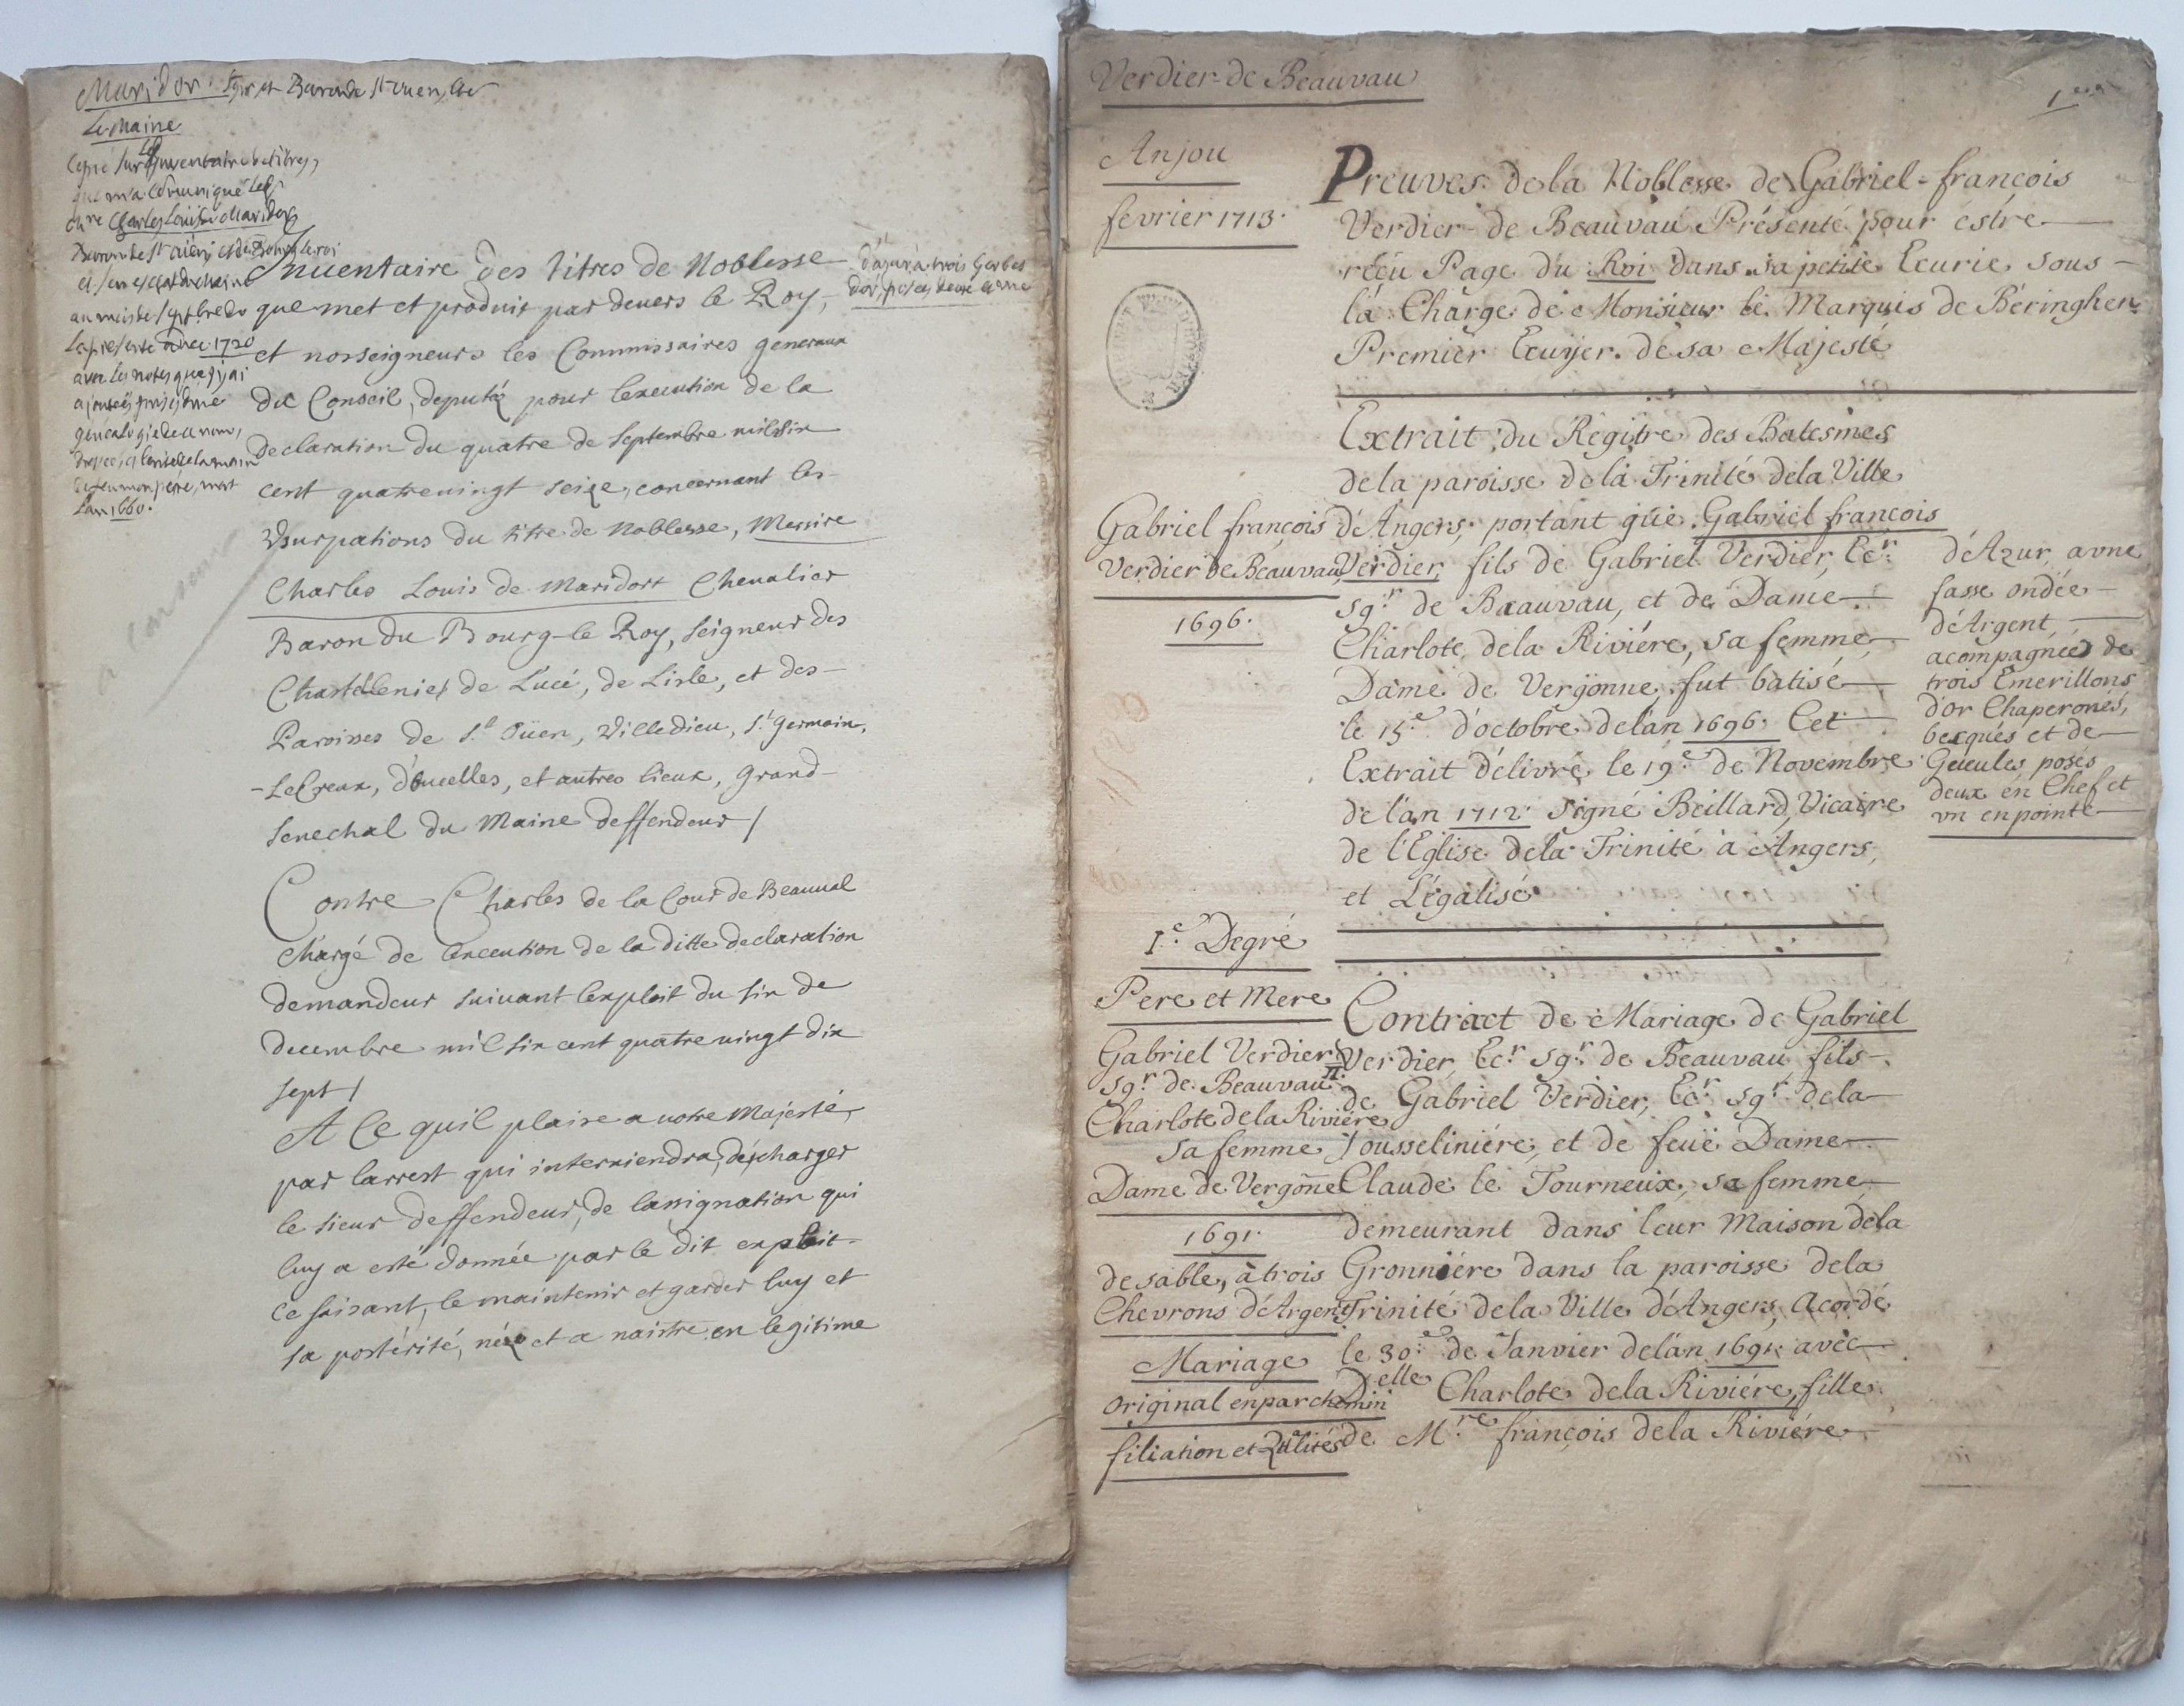 Maridor. Sgr et Baron de St ouen, &c
Le Maine
Copié sur l'inventaire de titres,
que m'a comuniqué led.
Charles Louis de Maridor
Baron de St ouen, et de Bourg le roi
au mois de septbre de
la presente année 1720
avec les notes que j'y ai
ajoutées prises d'une
genealogie de ce nom,
dressée, et écrite de la main
de feu mon pére, mort
l'an 1660.
d'azur à trois Gerbes
d'or, posées deux et une
Inuentaire des titres de Noblesse
que met et produit par deuers le Roy,
et nosseigneurs les Commissaires generaux
du Conseil, deputéz pour lexecution de la
declaration du quatre de Septembre mil six
cent quatreuingt seize, concernant les
Vsurpations du titre de Noblesse, Messire
Charles Louis de Maridort Cheualier
Baron du Bourg-le Roy, Seigneur des
Chastellenies de Lucé, de Lisle, et des
Paroisses de St. Oüen, Villedieu, St. Germain,
-LeCreux, d'oucelles, et autres lieux, grand
Senechal du Maine deffendeur /
Contre Charles de la Cour de Beauual
Chargé de lexecution de la ditte declaration
demandeur suiuant lexploit du six de
decembre mil six cent quatre uingt dix
sept /
A Ce quil plaise a uotre Majesté,
par larrest qui interuiendra, décharger
le sieur deffendeur, de lassignation qui
luy a esté donnée par le dit exploit
ce faisant, le maintenir et garder luy et
sa postérité, née et a naistre en legitime
Verdier de Beauvau
1ere
Anjou
fevrier 1713.
Preuves de la Noblesse de Gabriel-françois
Verdier de Beauvau Présenté pour éstre
réçu Page du Roi dans sa petite Ecurie, sous
la Charge de Monsieur le Marquis de Béringhen
Premier Ecuyer de sa Majesté
Extrait du Régitre des Batesmes
de la paroisse de la Trinité de la Ville
Gabriel françois
Verdier de Beauvau
1696.
d'Angers, portant que Gabriel françois
Verdier, fils de Gabriel Verdier, Ecr.
Sgr. de Beauvau, et de Dame
Charlote de la Riviére, sa femme,
Dame de Vergonne, fut batisé
le 15e. d'octobre de l'an 1696. Cet
Extrait délivré le 19e. de Novembre
de l'an 1712. signé Beillard, Vicaire
de l'Eglise de la Trinité à Angers,
et Légalisé
d'Azur, a vne
fasse ondée
d'Argent,
acompagnée de
trois Emerillons
d'or Chaperonés,
becqués et de
Gueules posés
deux en Chef et
vn en pointe
Ie. Degré
Pere et Mere
Gabriel Verdier II.
Sgr. de Beauvau
Charlote de la Riviere
sa femme
Dame de Vergoñe
1691.
de sable, à trois
Chevrons d'Argent
Mariage
original en parchemin
filiation et Qualités
Contract de Mariage de Gabriel
Verdier, Ecr. Sgr. de Beauvau, fils
de Gabriel Verdier, Ecr. Sgr. de la
Jousseliniére, et de feuë Dame
Claude le Tourneux, sa femme,
demeurant dans leur Maison de la
Gronniére dans la paroisse de la
Trinité de la Ville d'Angers, acordé
le 30e. de Janvier de l'an 1691. avec
Delle Charlote de la Riviére, fille
de Mre. françois de la Riviére